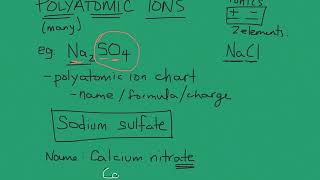 POLYATOMIC IONS
(many)
ionics
+ -
2 elements.
eg. Na2SO4
NaCl
- polyatomic ion chart
- name/formula/charge
Sodium sulfate
Name: Calcium nitrate
Ca